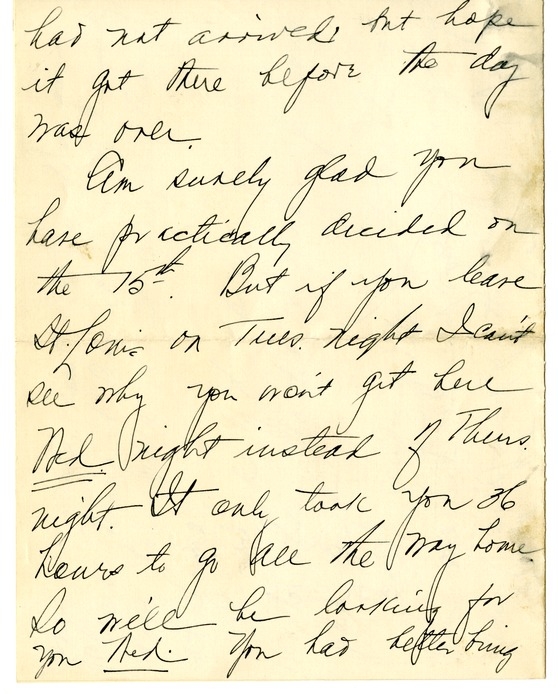 had not arrived, but hope
it got there before the day
was over.
Am surely glad you
have practically decided on
the 15th. But if you leave
St. Louis on Tues. night I can't
see why you won't get here
Wed. night instead of Thurs.
night. It only took you 36
hours to go all the way home.
So we'll be looking for
you Wed. You had better bring